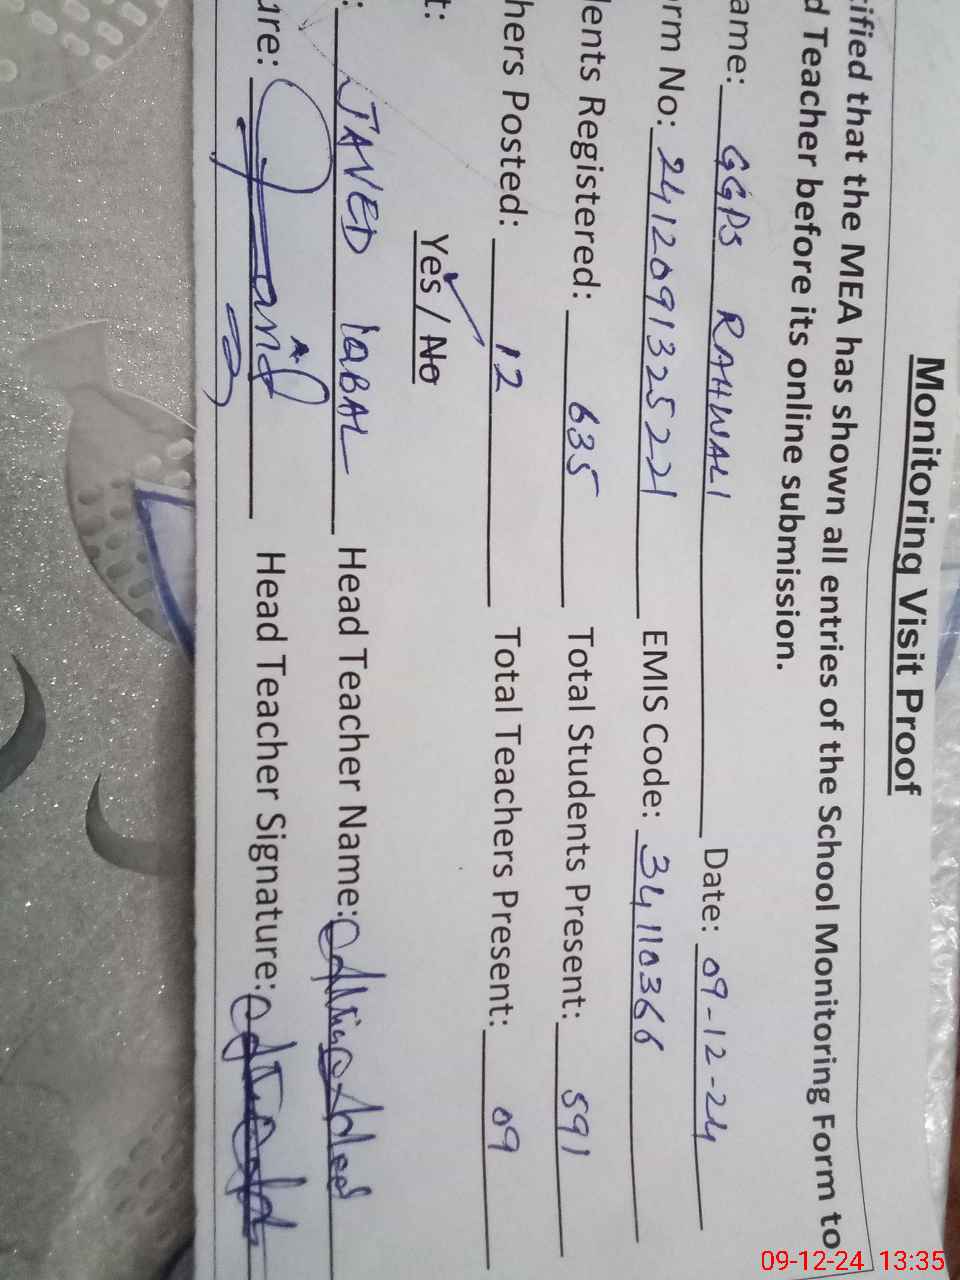 Monitoring Visit Proof
tified that the MEA has shown all entries of the School Monitoring Form to
d Teacher before its online submission.
ame: GGPS RAHWALI Date: 09-12-24
orm No: 2412091325221 EMIS Code: 34110366
dents Registered: 635 Total Students Present: 591
hers Posted: 12 Total Teachers Present: 09
t: Yes / No
: JAVED IQBAL Head Teacher Name:
ure: Head Teacher Signature:
09-12-24 13:35